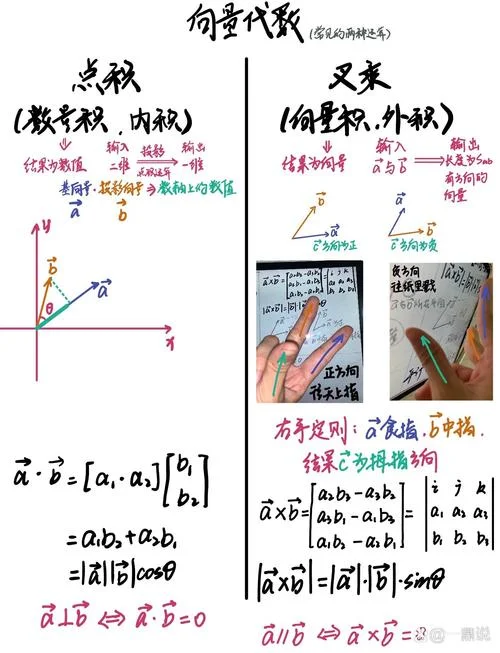 向量代数 (常见的两种运算)
点积
(数号积, 内积)
结果为数值
输入
二维
投影
点积运算
输出
一维
基向量·投影向量⇒数轴上的数值
a⃗ b⃗
y
b⃗
a⃗
θ
x
a⃗·b⃗ = [a₁·a₂] [b₁ b₂]
= a₁b₂+a₂b₁
= |a⃗||b⃗|cosθ
a⃗⊥b⃗ ⇔ a⃗·b⃗=0
叉乘
(向量积, 外积)
结果为向量
输入
a⃗与b⃗
输出
长度为Sab
有方向的
向量
b⃗
a⃗
c⃗方向为正
a⃗
b⃗
c⃗方向为负
正方向
往天上指
负方向
往纸里戳
右手定则: a⃗食指, b⃗中指,
结果c⃗为拇指方向
a⃗×b⃗ = [a₂b₃-a₃b₂ a₃b₁-a₁b₃ a₁b₂-a₂b₁] = |i j k a₁ a₂ a₃ b₁ b₂ b₃|
|a⃗×b⃗|=|a⃗|·|b⃗|·sinθ
a⃗∥b⃗ ⇔ a⃗×b⃗=
@一鼎说